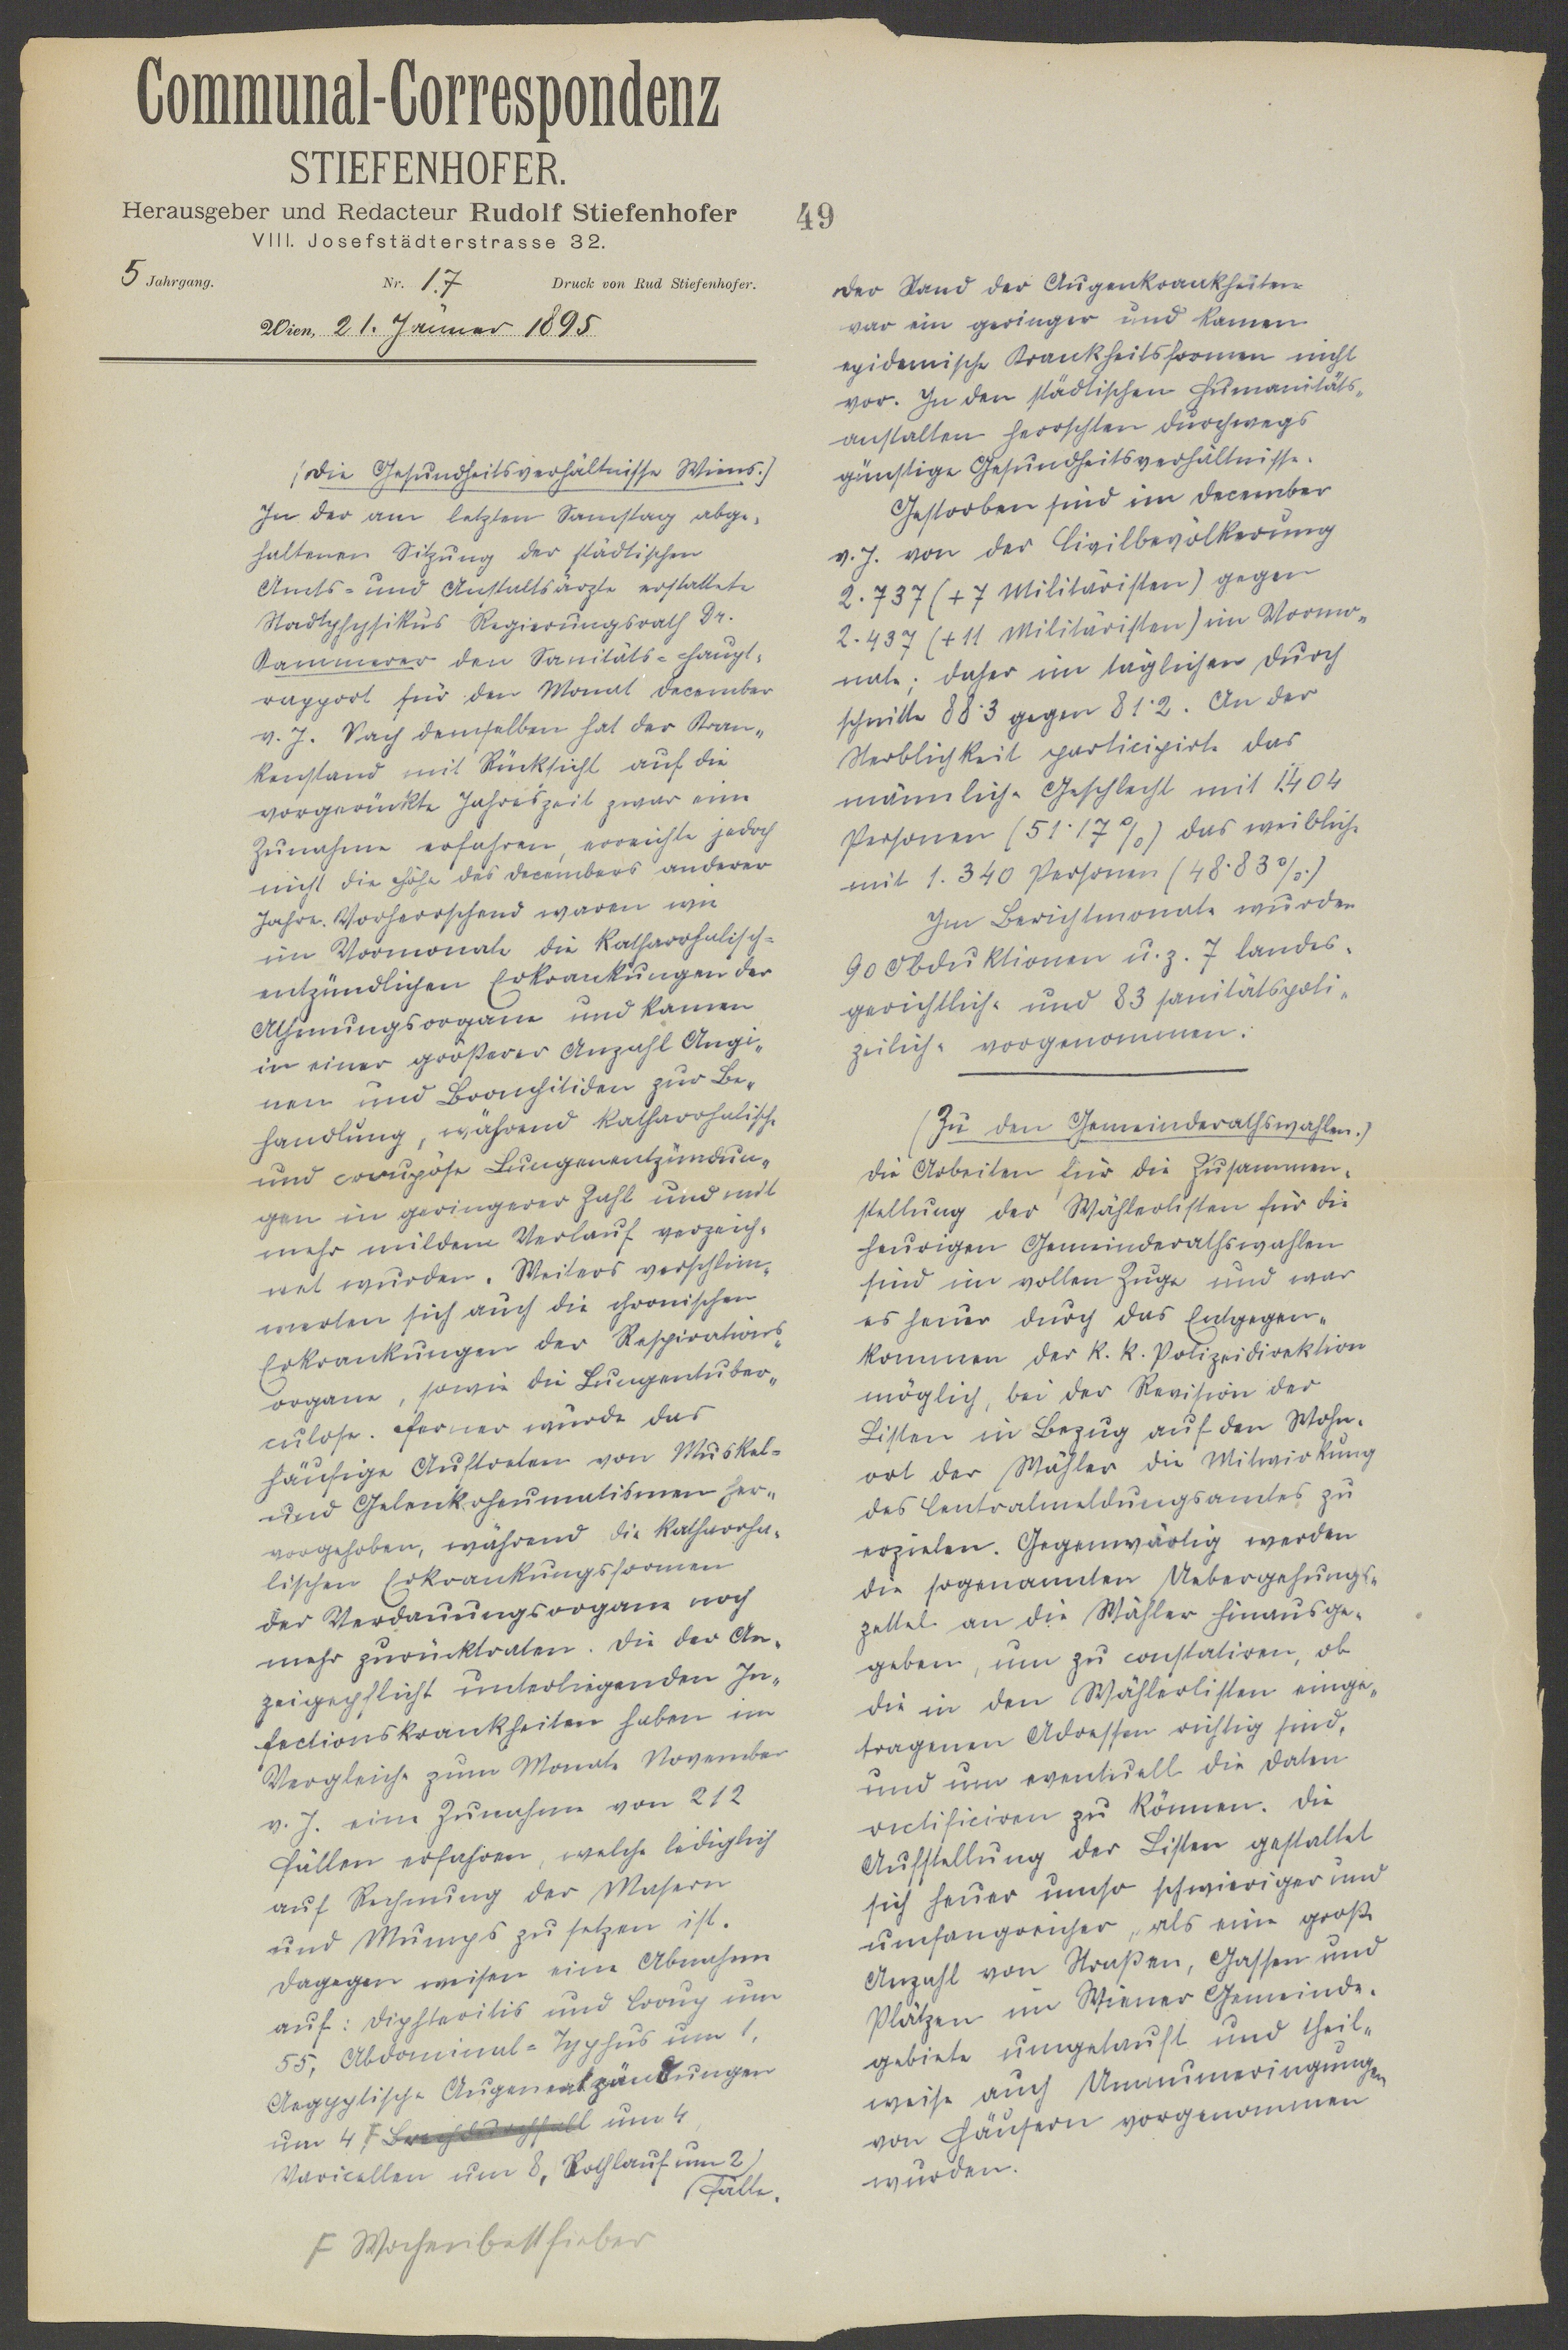 Communal-Correspondenz
STIEFENHOFER.
Herausgeber und Redacteur Rudolf Stiefenhofer
VIII. Josefstädterstrasse 32.
5 Jahrgang. Nr. 17 Druck von Rud Stiefenhofer.
Wien, 21. Jänner 1895
49
(Die Gesundheitsverhältnisse Wiens.)
In der am letzten Samstag abge„
haltenen Sitzung der städtischen
Amts- und Anstaltsärzte erstattete
Stadtphysikus Regierungsrath Dr.
Kammerer den Sanitäts-Haupt„
rapport für den Monat December
v. J. Nach demselben hat der Kran„
kenstand mit Rücksicht auf die
vorgerückte Jahreszeit zwar eine
Zunahme erfahren, erreichte jedoch
nicht die Höhe des Decembers anderer
Jahre. Vorherrschend waren wie
im Vormonate die katharrhalisch-
entzündlichen Erkrankungen der
Athmungsorgane und kamen
in einer größerer Anzahl Angi„
nen und Bronchitiden zur Be„
handlung, während katharrhalische
und croupöse Lungenentzündun„
gen in geringerer Zahl und mit
mehr mildem Verlauf verzeich„
net wurden. Weiters verschlim„
merten sich auch die chronischen
Erkrankungen der Respirations„
organe, sowie die Lungentuber„
culose. Ferner wurde das
häufige Auftreten von Muskel-
und Gelenksrheumatismen her„
vorgehoben, während die katharrha„
lischen Erkrankungsformen
der Verdauungsorgane noch
mehr zurücktraten. Die der An„
zeigepflicht unterliegenden In„
fectionskrankheiten haben im
Vergleiche zum Monate November
v. J. eine Zunahme von 212
Fällen erfahren, welche lediglich
auf Rechnung der Masern
und Mumps zu setzen ist.
Dagegen weisen eine Abnahme
auf: Diphteritis und Croup um
55, Abdominal-Typhus um 1,
Aegyptische Augenentzündungen
um 4 F Brechdurchfall um 4,
Varicellen um 8, Rothlauf um 2
Fälle.
F Wochenbettfieber
Der Stand der Augenkrankheiten
war ein geringer und kamen
epidemische Krankheitsformen nicht
vor. In den städtischen Humanitäts„
anstalten herrschten durchwegs
günstige Gesundheitsverhältnisse.
Gestorben sind im December
v. J. von der Civilbevölkerung
2.737 (+ 7 Militäristen) gegen
2.437 (+ 11 Militäristen) im Vormo„
nate; daher im täglichen Durch
schnitte 88·3 gegen 81·2. An der
Sterblichkeit participirte das
männliche Geschlecht mit 1.404
Personen (51·17 %) das weibliche
mit 1.340 Personen (48·83 %.)
Im Berichtmonate wurden
90 Obduktionen u. z. 7 landes„
gerichtliche und 83 sanitätspoli„
zeiliche vorgenommen.
(Zu den Gemeinderathswahlen.)
Die Arbeiten für die Zusammen„
stellung der Wählerlisten für die
heurigen Gemeinderathswahlen
sind im vollen Zuge und war
es heuer durch das Entgegen„
kommen der k. k. Polizeidirektion
möglich, bei der Revision der
Listen in Bezug auf den Wohn„
ort der Wähler die Mitwirkung
des Centralmeldungsamtes zu
erzielen. Gegenwärtig werden
die sogenannten Uebergehungs„
zettel an die Wähler hinausge„
geben, um zu constatiren, ob
die in den Wählerlisten einge„
tragenen Adressen richtig sind,
und um eventuell die Daten
rectificiren zu können. Die
Aufstellung der Listen gestaltet
sich heuer umso schwieriger und
umfangreicher, als eine große
Anzahl von Straßen, Gassen und
Plätzen im Wiener Gemeinde„
gebiete umgetauft und theil„
weise auch Umnumerirungen
von Häusern vorgenommen
wurden.